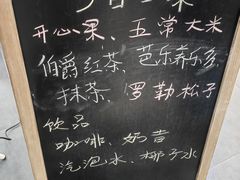 开心果、五常大米
伯爵红茶、芭乐养乐多
抹茶、罗勒松子
饮品
咖啡、奶昔
泡泡水、椰子水